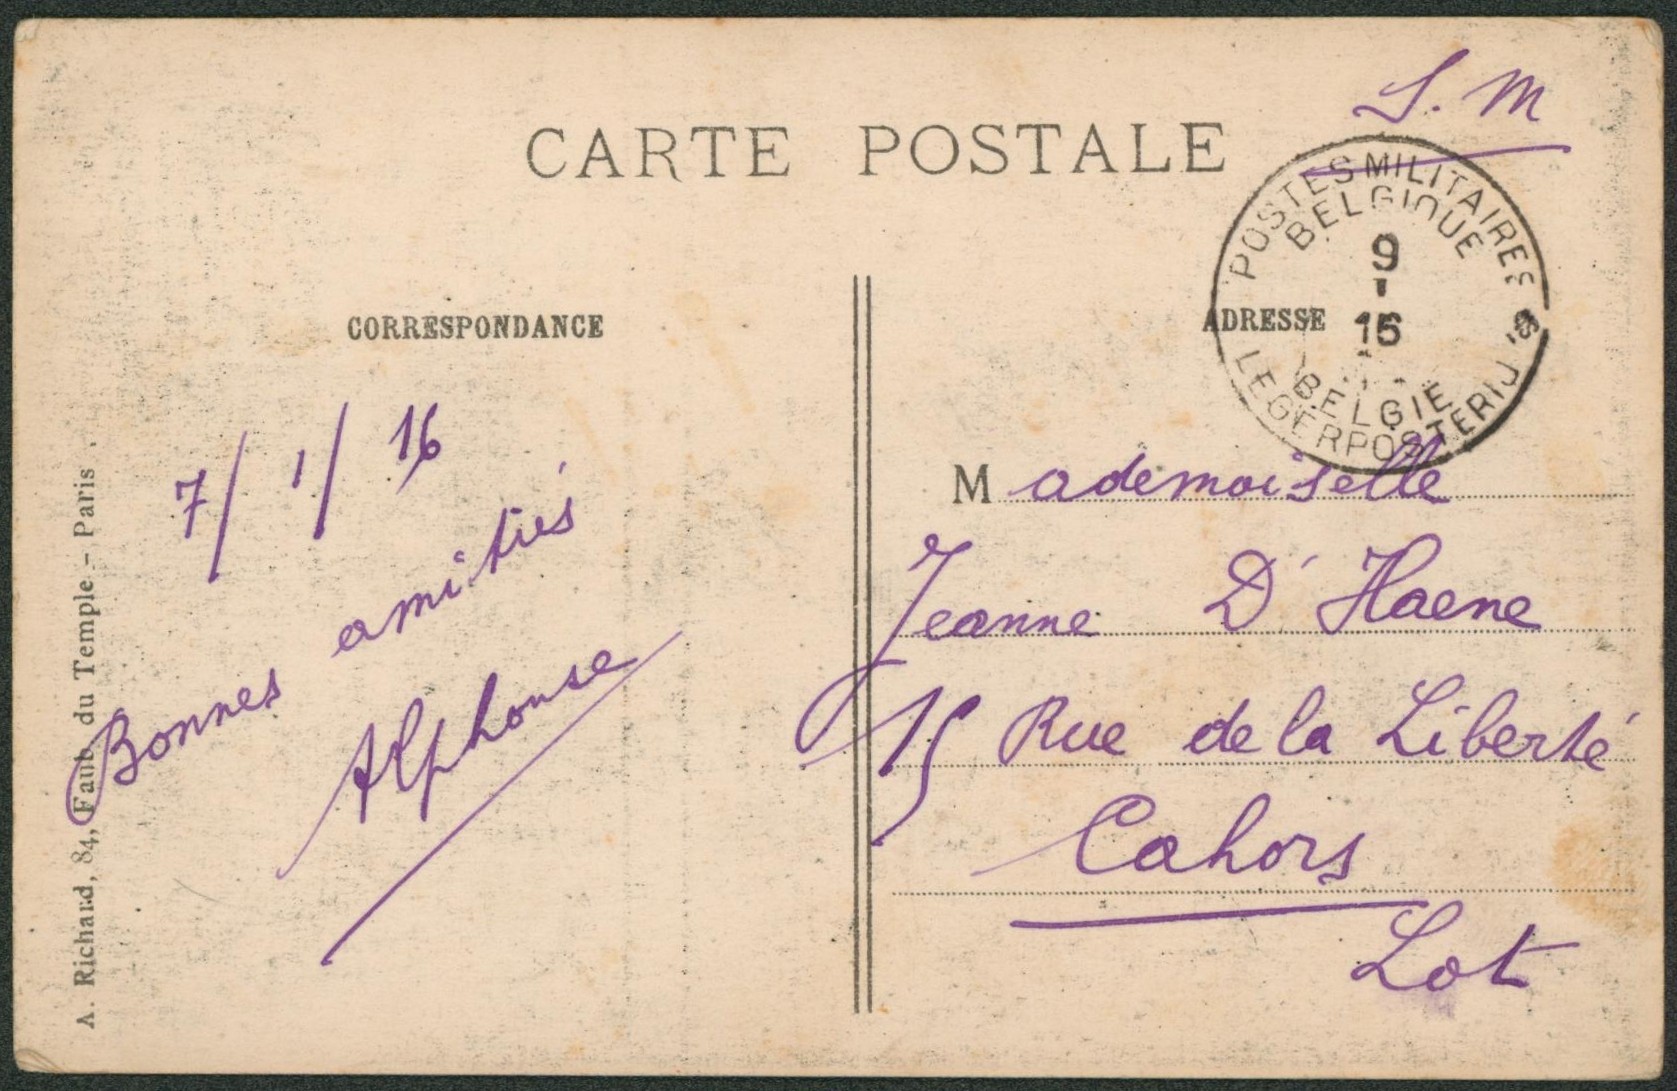 S. M
CARTE POSTALE
POSTES MILITAIRES
BELGIQUE
9
15
BELGIE
LEGERPOSTERIJ
CORRESPONDANCE
ADRESSE
7/1/16
Bonnes amitiés
Alphonse
Mademoiselle
Jeanne D'Haene
15 Rue de la Liberté
Cahors
Lot
A. Richard, 84, Faub. du Temple - Paris